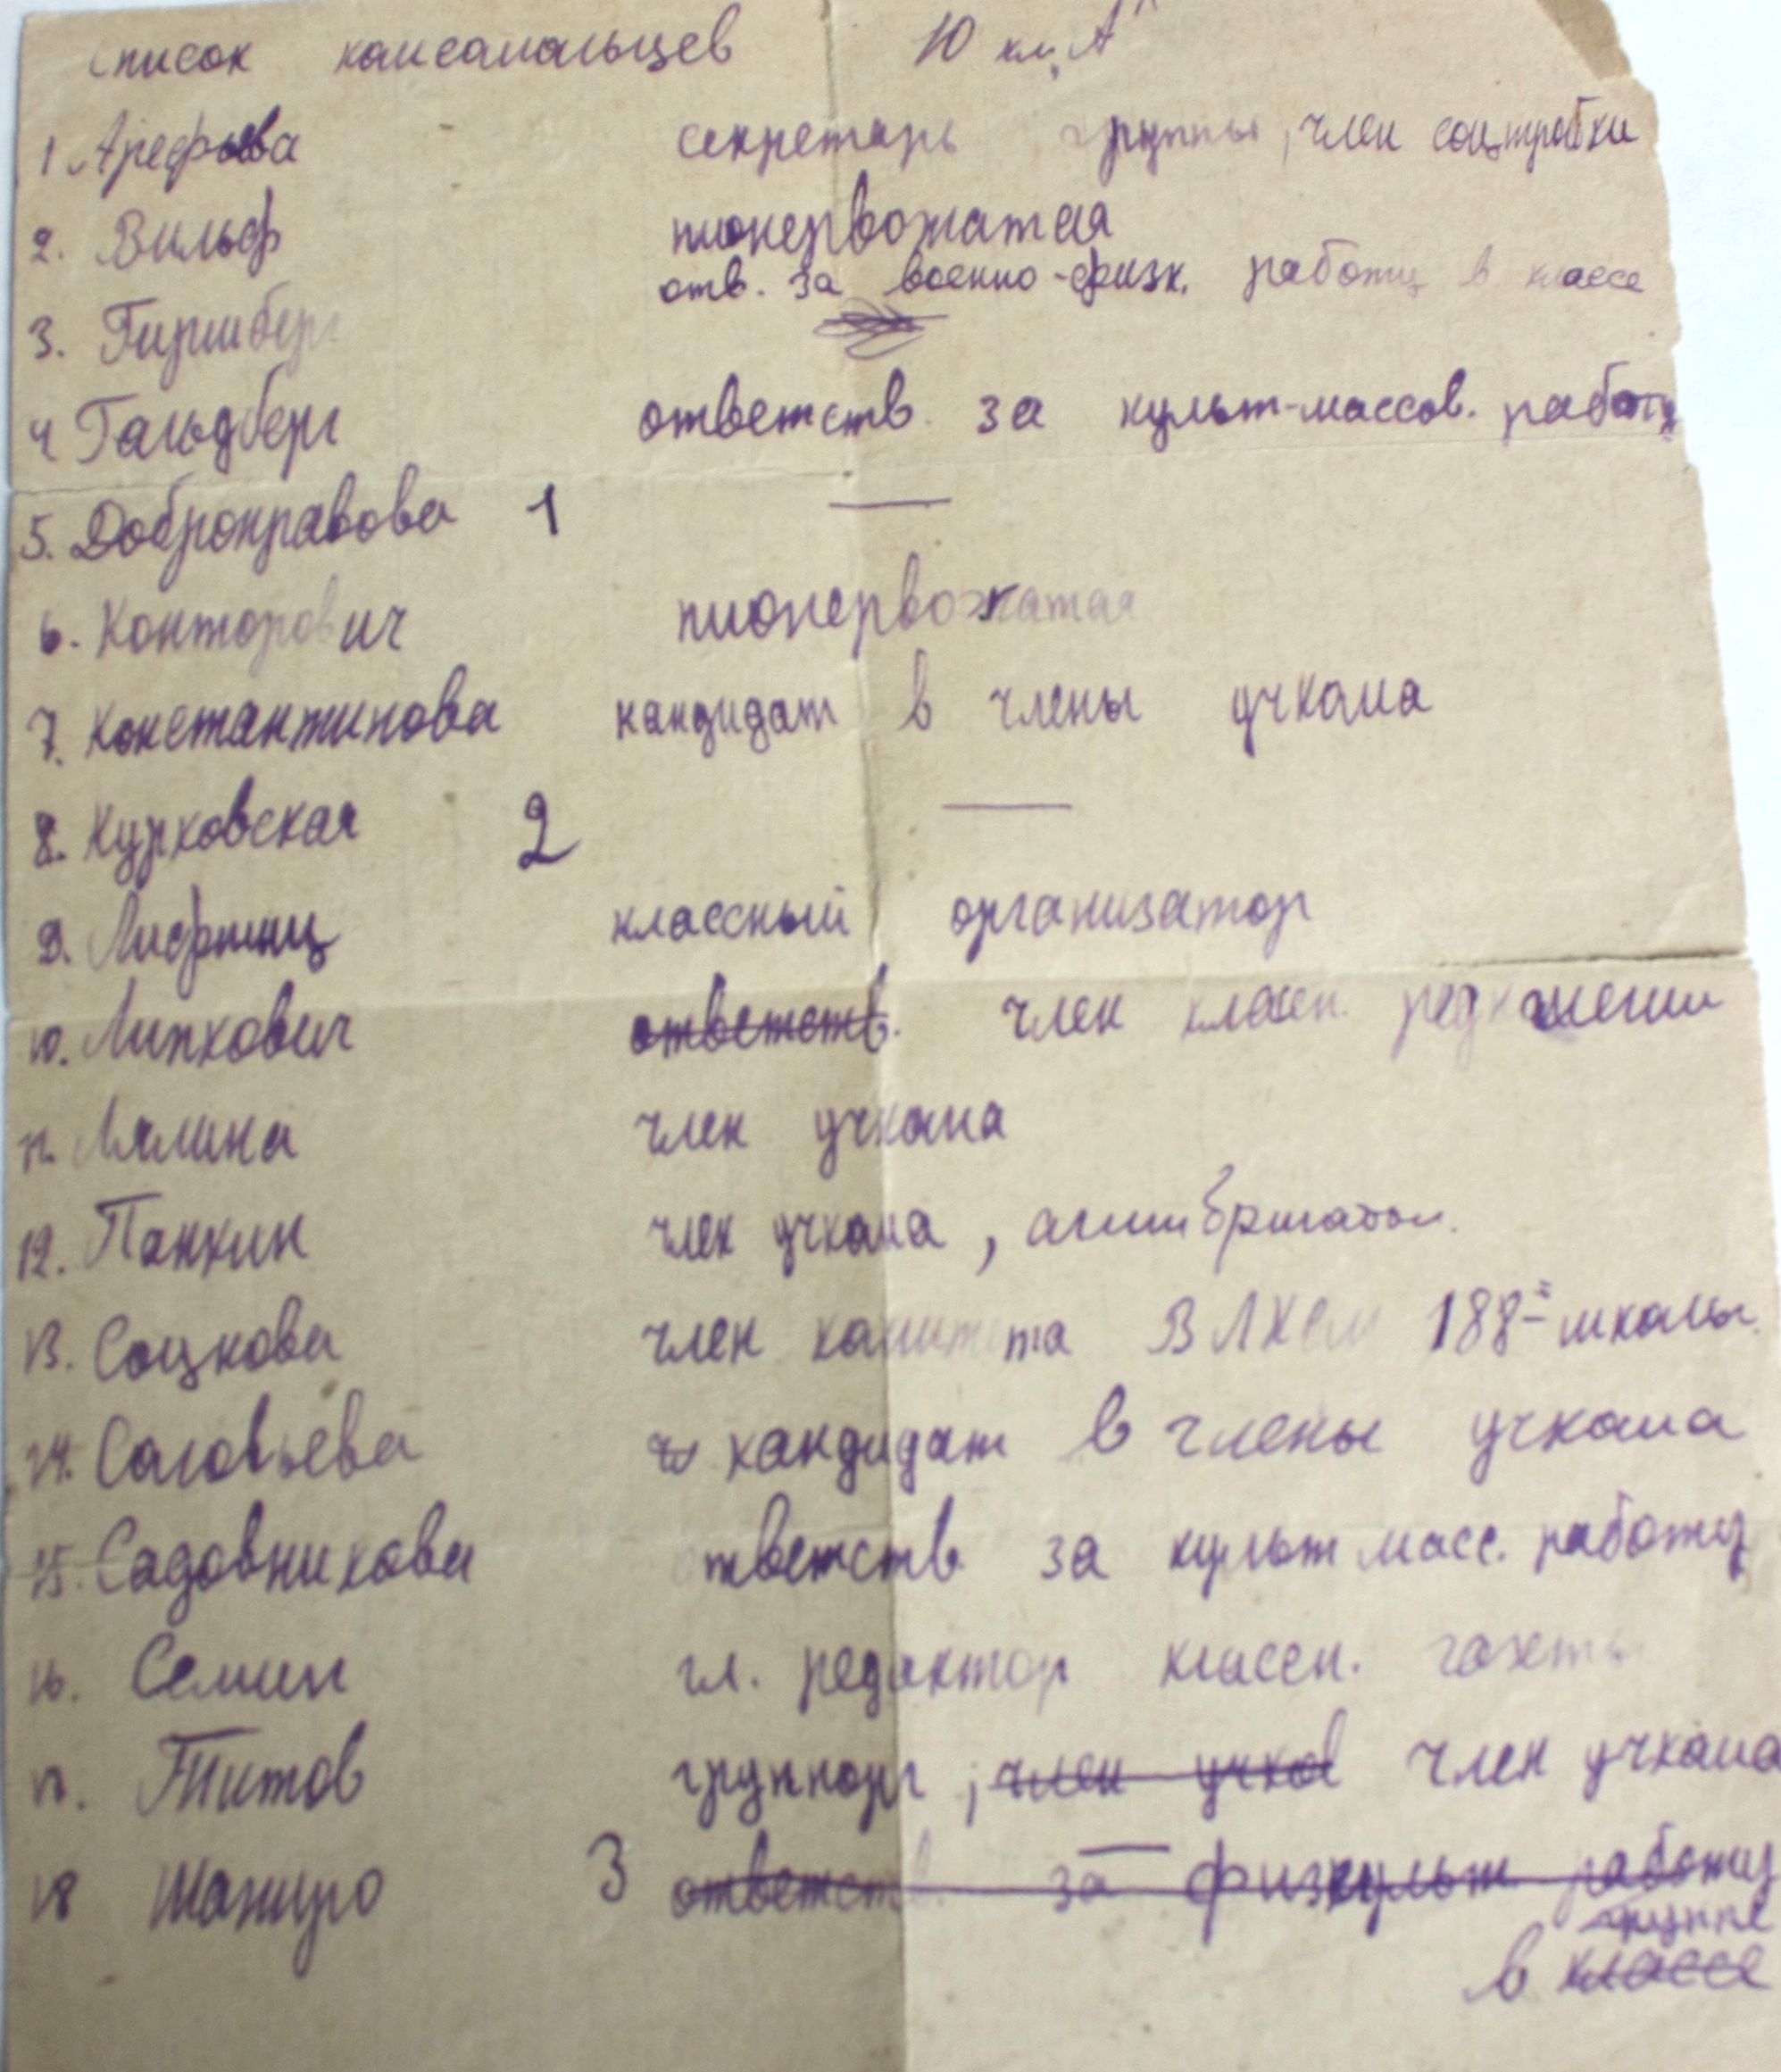 Список комсомольцев 10 кл „А"
1 Арефьева секретарь группы, член соцтройки
2. Вильф пионервожатая
отв. за военно-физк. работу в классе
3. Гиршберг
4 Гольдберг ответств. за культ-массов. работу
5. Добронравова 1 —
6. Конторович пионервожатая
7. Константинова кандидат в члены учкома
8. Курковская 2 —
9. Лифшиц классный организатор
10. Липкович ответств. член классн. редколлегии
11. Лялина член учкома
12. Панкин член учкома, агитбригады.
13. Соцкова член комитета ВЛКСМ 188-й школы.
14. Соловьева ч кандидат в члены учкома
15. Садовникова ответств за культ масс. работу
16. Семин гл. редактор классн. газеты
17. Титов группорг, член учков член учкома
18 Шапиро 3 — ответств. за физкульт работу
группе
в классе